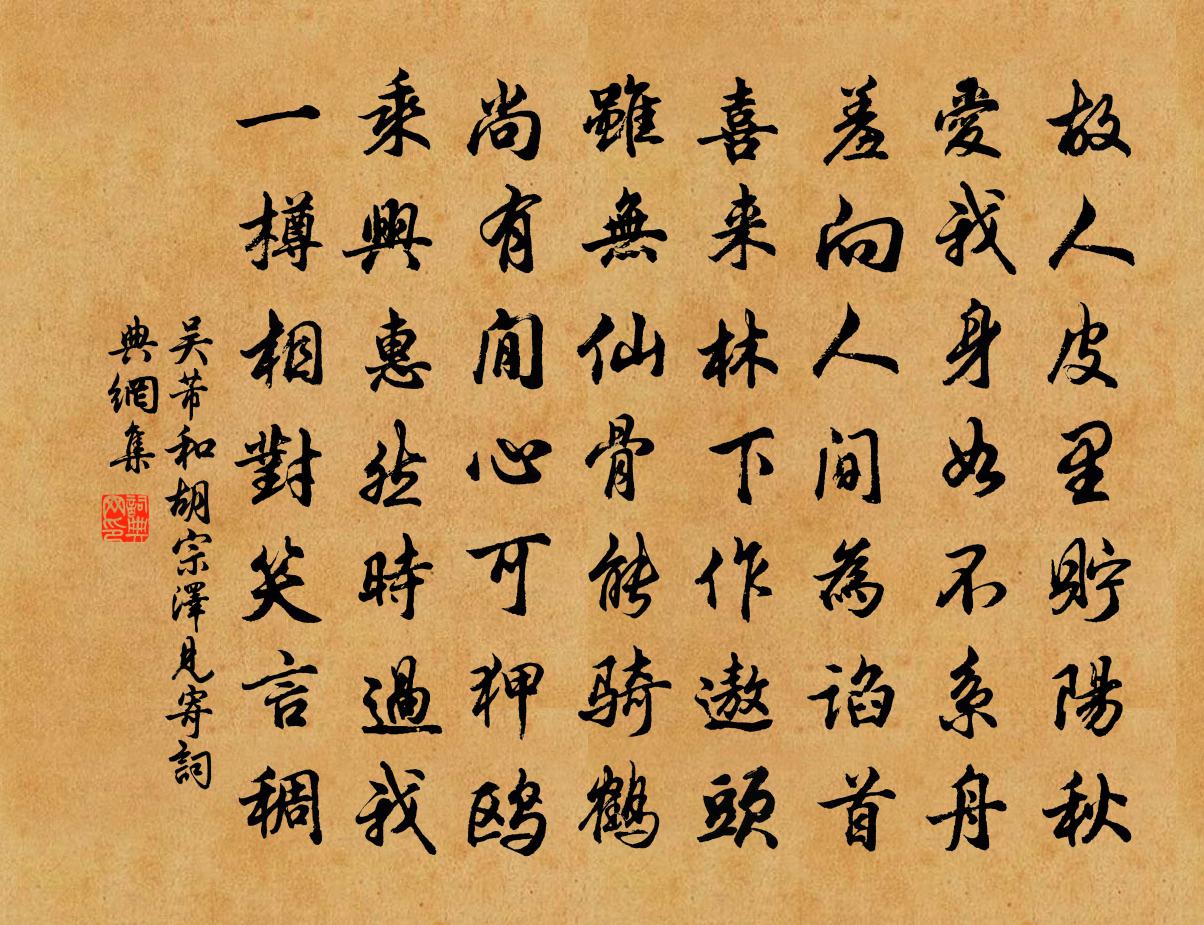 故人皮里貯陽秋
愛我身如不系舟
羞向人間為諂首
喜来林下作遨頭
雖無仙骨能騎鶴
尚有閒心可狎鷗
乘興惠然時過我
一樽相對笑言稠
吴芾和胡宗澤見寄詞
典網集
詞典
网印